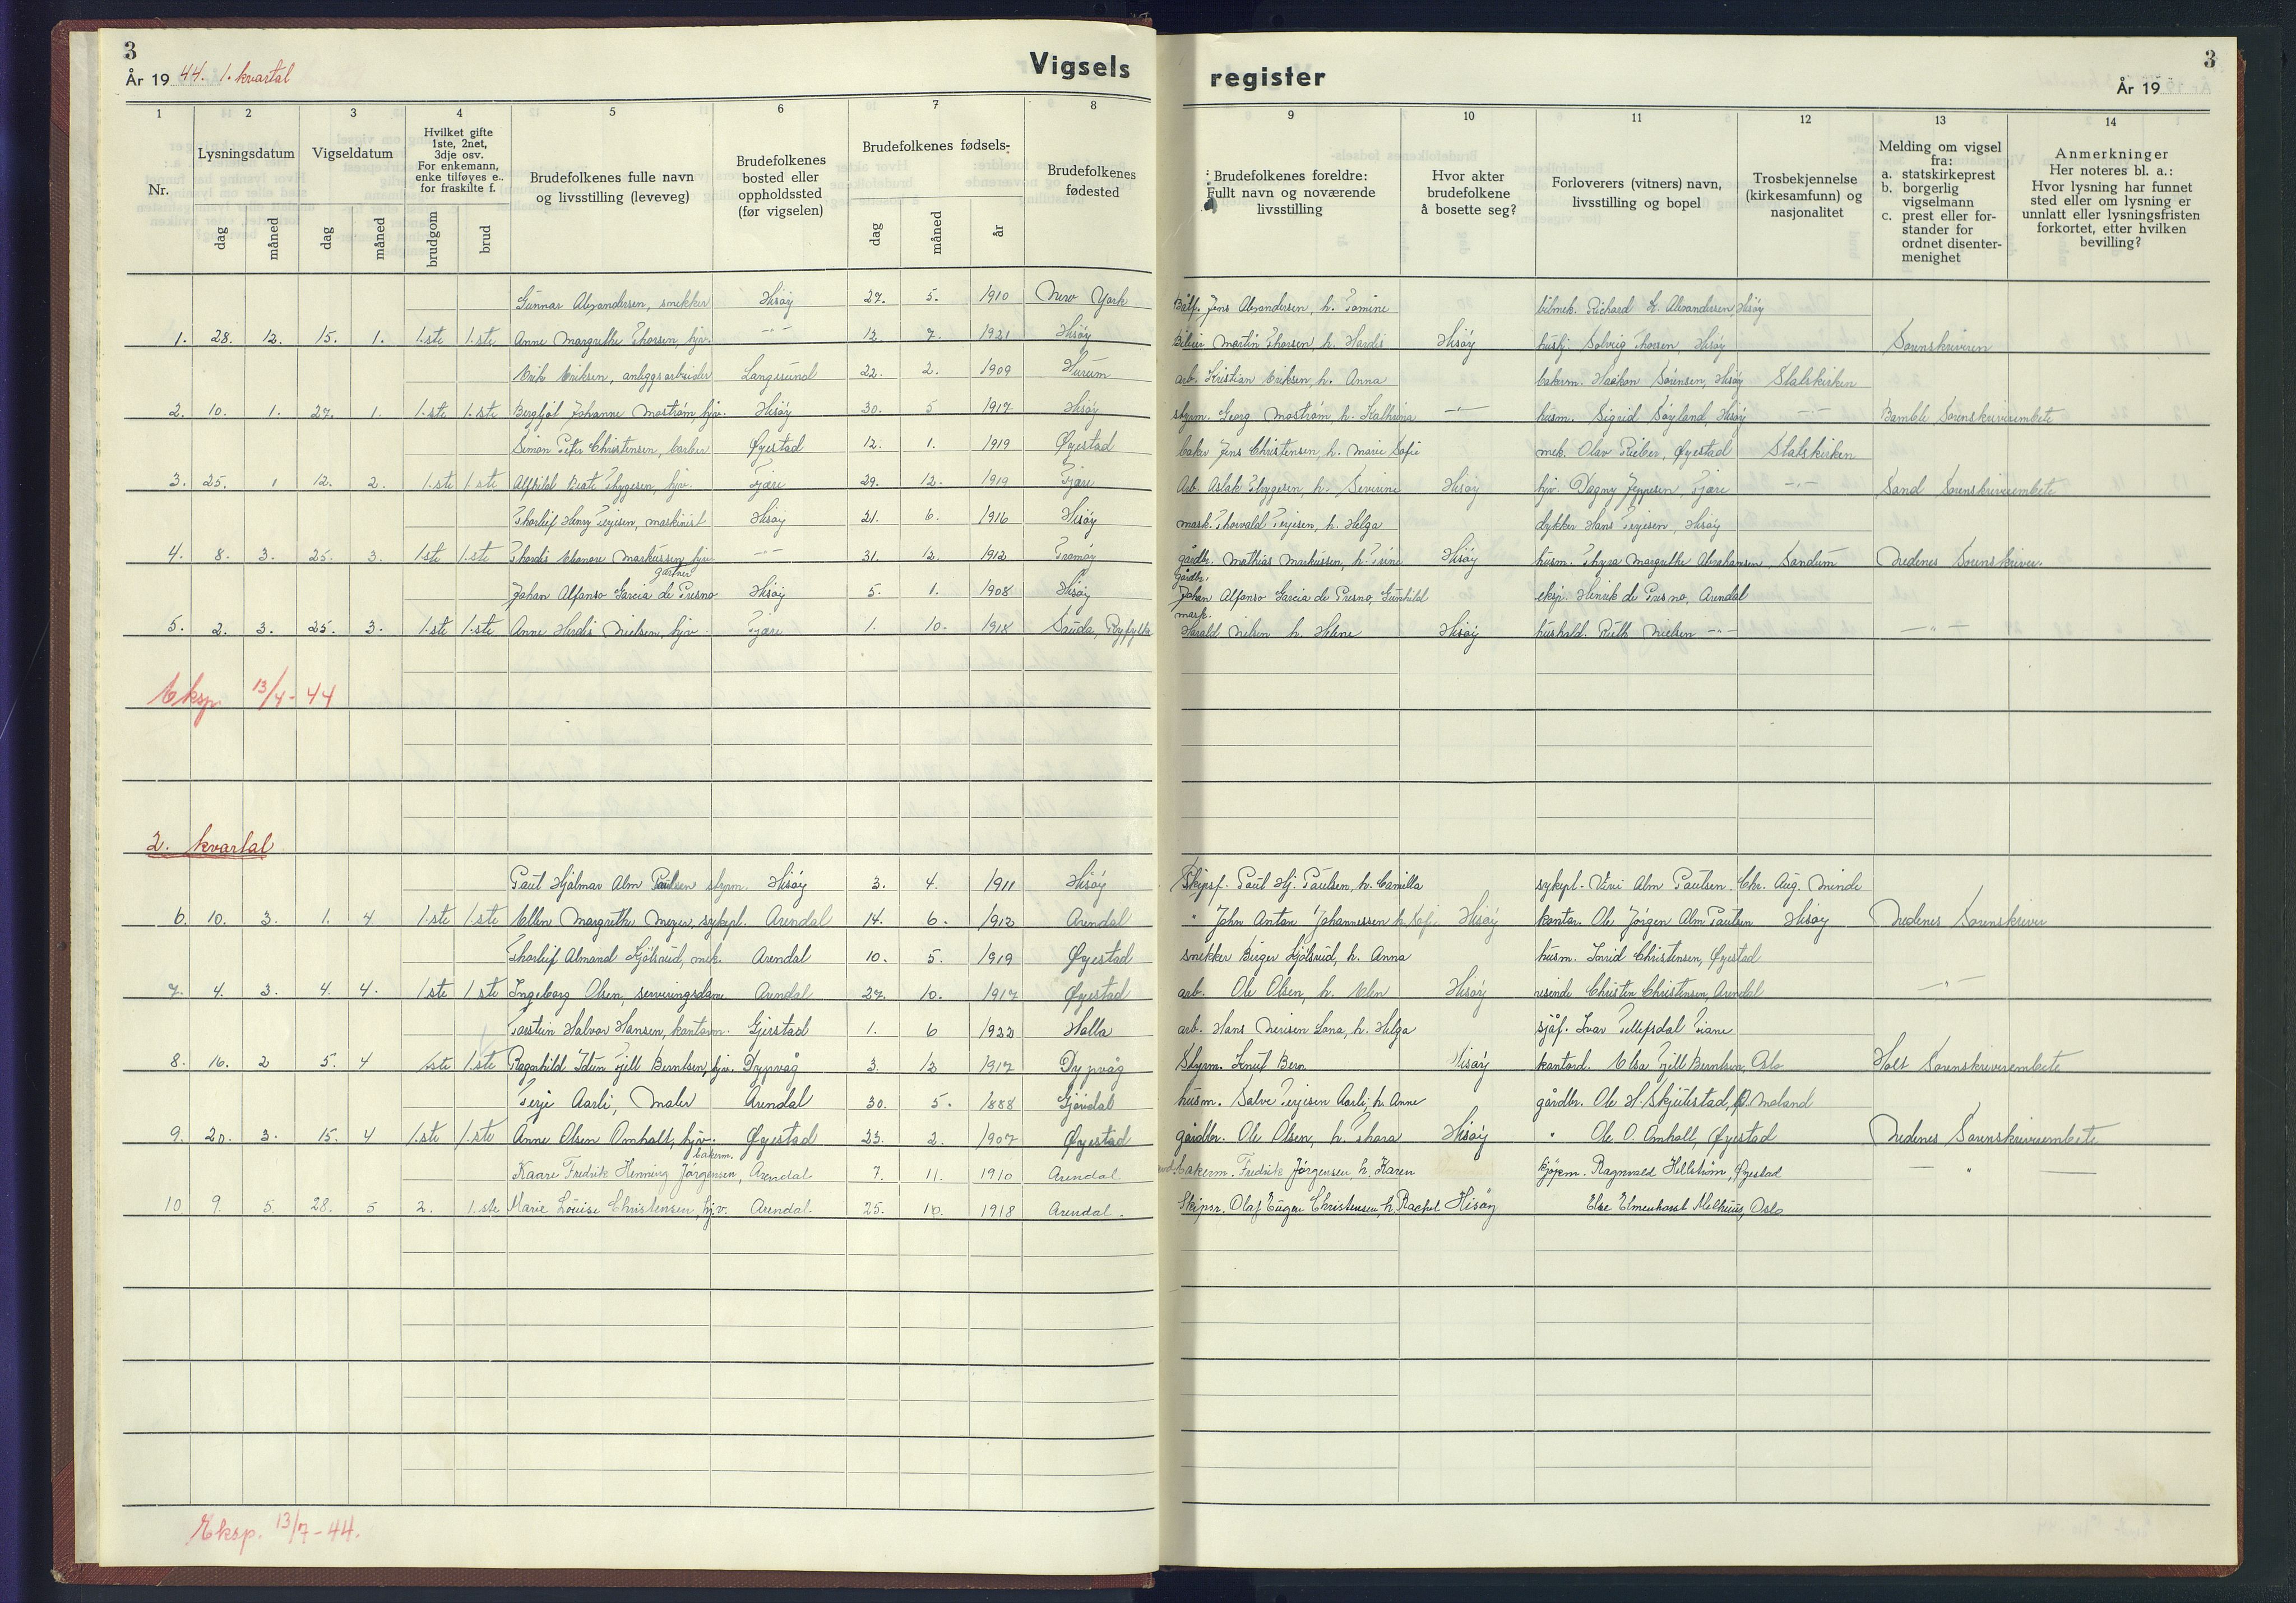 3
År 19 44. 1. kvartal
Vigsels
1 2 3 4 5 6 7 8
Nr.
Lysningsdatum
Vigseldatum
Hvilket gifte
1ste, 2net,
3dje osv.
For enkemann,
enke tilføyes e..
for fraskilte f.
Brudefolkenes fulle navn
og livsstilling (leveveg)
Brudefolkenes
bosted eller
oppholdssted
(før vigselen)
Brudefolkenes fødsels-
Brudefolkenes
fødested
dag måned dag måned brudgom brud dag måned år
Gunnar Alexandersen, snekker Hisøy 27. 5. 1910 New York
1. 28. 12. 15. 1. 1.ste 1.ste Anne Margrethe Thorsen, hjv. -"- 12. 7. 1921 Hisøy
Erik Eriksen, anleggsarbeider Langesund 22. 2. 1909 Hurum
2. 10. 1. 27. 1. 1.ste 1.ste Bergljot Johanne Moström, hjv. Hisøy 30. 5 1917 Hisøy
Simon Peter Christensen, barber Øyestad 12. 1. 1919 Øyestad
3. 25. 1 12. 2. 1.ste 1.ste Alfhild Beate Thygesen, hjv. Fjære 29. 12. 1919 Fjære
Thorleif Henry Terjesen, maskinist Hisøy 21. 6. 1916 Hisøy
4. 8. 3. 25. 3. 1.ste 1.ste Thordis Eleanore Markussen, hjv. -"- 31. 12. 1912 Tromøy
gartner
Johan Alfonso Garcia de Presno Hisøy 5. 1. 1908 Hisøy
5. 2. 3. 25. 3. 1.ste 1.ste Anne Herdis Nielsen, hjv. Fjære 1. 10. 1918 Sauda, Ryfylke
Eksp. 13/4-44
2. kvartal
Paul Hjalmar Alm Paulsen styrm. Hisøy 3. 4. 1911 Hisøy
6. 10. 3. 1. 4 1.ste 1.ste Ellen Margrethe Meyer, sykepl. Arendal 14. 6. 1912 Arendal
Thorleif Almand Kjølsrud, mek. Arendal 10. 5. 1919 Øyestad
7. 4. 3. 4. 4. 1.ste 1.ste Ingeborg Olsen, serveringsdame Arendal 27. 10. 1917 Øyestad
Torstein Halvor Hansen, kontorm. Gjerstad 1. 6 1922 Holla
8. 16. 2 5. 4 1.ste 1.ste Ragnhild Idun Fjell Berntsen, hjv. Dypvåg 3. 12 1917 Dypvåg
Terje Aarli, Maler Arendal 30. 5. 1888 Gjøvdal
9. 20. 3. 15. 4 1.ste 1.ste Anne Olsen Omholt, hjv. Øyestad 23. 2. 1907 Øyestad
bakerm.
Kaare Fredrik Henning Jörgensen, Arendal 7. 11. 1910 Arendal.
10 9. 5. 28. 5 2. 1.ste Marie Louise Christensen, hjv. Arendal. 25. 10. 1918 Arendal.
Eksp. 13/7-44.
3
register
År 19
9 10 11 12 13 14
Brudefolkenes foreldre:
Fullt navn og noværende
livsstilling
Hvor akter
brudefolkene
å bosette seg?
Forloverers (vitners) navn,
livsstilling og bopel
Trosbekjennelse
(kirkesamfunn) og
nasjonalitet
Melding om vigsel
fra:
a. statskirkeprest
b. borgerlig
vigselmann
c. prest eller for-
stander for
ordnet disenter-
menighet
Anmerkninger
Her noteres bl. a.:
Hvor lysning har funnet
sted eller om lysning er
unnlatt eller lysningsfristen
forkortet, etter hvilken
bevilling?
Båtf. Jens Alexandersen, h. Tomine bilmek. Richard K. Alexandersen, Hisøy
Martin Thorsen, h. Hardis Hisøy hushj. Solveig Thorsen, Hisøy Sorenskriveren
arb. Kristian Eriksen, h. Anna bakerm. Haakon Sørensen, Hisøy Statskirken
styrm. Georg Moström, h. Kathrina -"- husm. Sigrid Søyland, Hisøy -"- Bamble Sorenskriverembete
baker Jens Christensen, h. Marie Sofie mek. Olav Rieber, Øyestad Statskirken
Arb. Aslak Thygesen, h. Severine Hisøy hjv. Dagny Jeppesen, Fjære -"- Sand Sorenskriverembete
mask. Thorvald Terjesen, h. Helga dykker Hans Terjesen, Hisøy
gårdbr. Mathias Markussen, h. Trine Hisøy husm. Thyra Margrethe Abrahamsen, Sandum Nedenes Sorenskriver.
gårdbr.
Johan Alfonso Garcia de Presno, Gunhild eksp. Henrik de Presno, Arendal
mask.
Harald Nilsen h. Helene Hisøy hushold. Ruth Nielsen -"- -"-
Skipsf. Paul Hj. Paulsen, h. Camilla sykepl. Vivi Alm Paulsen. Chr. Aug. Minde
" John Anton Johannessen h. Sofi Hisøy kontor. Ole Jørgen Alm Paulsen Hisøy Nedenes Sorenskriver
snekker Birger Kjølsrud, h. Anna husm. Inrid Christensen, Øyestad
arb. Ole Olsen, h. Elen Hisøy reisende Christen Christensen, Arendal -"-
arb. Hans Lona, h. Helga sjåf. Ivar Tellefsdal Tiane
Styrm. Knut Bern Hisøy kontord. Elsa Fjell Berntsen, Oslo Holt Sorenskriverembete
husm. Salve Terjesen Aarli, h. Anne gårdbr. Ole H. Skjulestad, Ø. Moland
gårdbr. Ole Olsen, h. Thora Hisøy " Ole O. Omholt, Øyestad Nedenes Sorenskriverembete
bakerm. Fredrik Jörgensen, h. Karen kjøpm. Ragnvald Hellström, Øyestad - " -
Skipsr. Olaf Eugen Christensen, h. Rachel Hisøy Else Elmenhorst Melhuus, Oslo